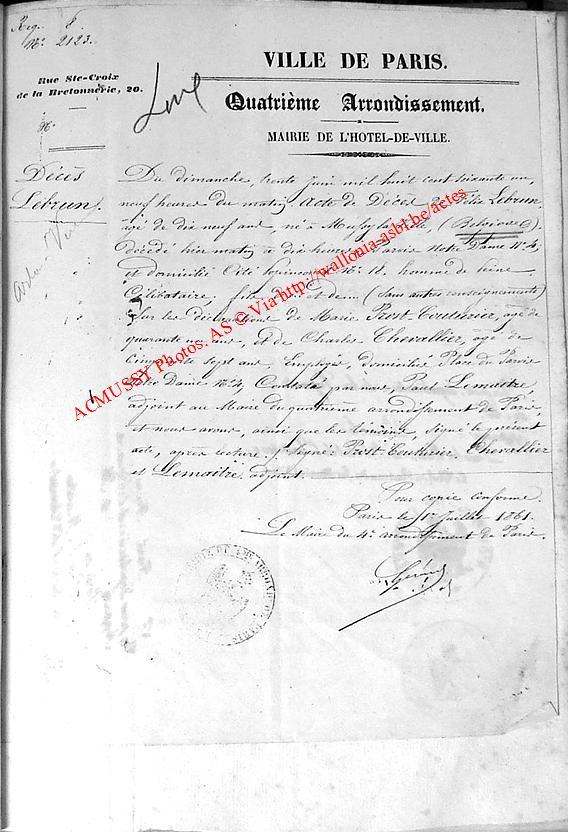 Reg. 8
N.º 2123.
Rue Ste-Croix
de la Bretonnerie, 20.
N.º
VILLE DE PARIS.
Quatrième Arrondissement.
MAIRIE DE L'HOTEL-DE-VILLE.
Décès
Lebrun.
Du dimanche, trente Juin mil huit cent soixante un,
neuf heures du matin, Acte de Décès de Félix Lebrun
agé de dix neuf ans, né à Mussy la (Belgique)
Décédé hier matin à dix heures, Parvis Notre Dame N.º 4
et domicilié Cité N.º 11. homme de peine
Célibataire, fils de et de (Sans autres renseignements)
Sur les déclarations de Marie Prost Couturier, agé de
quarante ans, et de Charles Chevallier, agé de
Cinquante sept ans, Employés, domiciliés Place du Parvis
Notre Dame N.º 4, Constaté par nous, Paul Lemaitre
adjoint au Maire du quatrième arrondissement de Paris,
et nous avons, ainsi que les témoins, signé le présent
acte, après lecture. Signé: Prost Couturier, Chevallier
et Lemaitre, adjoint.
Pour copie conforme.
Paris le 1er Juillet 1861.
Le Maire du 4e arrondissement de Paris.
ACMUSSY Photos. AS © Via http://wallonia-asbl.be/actes